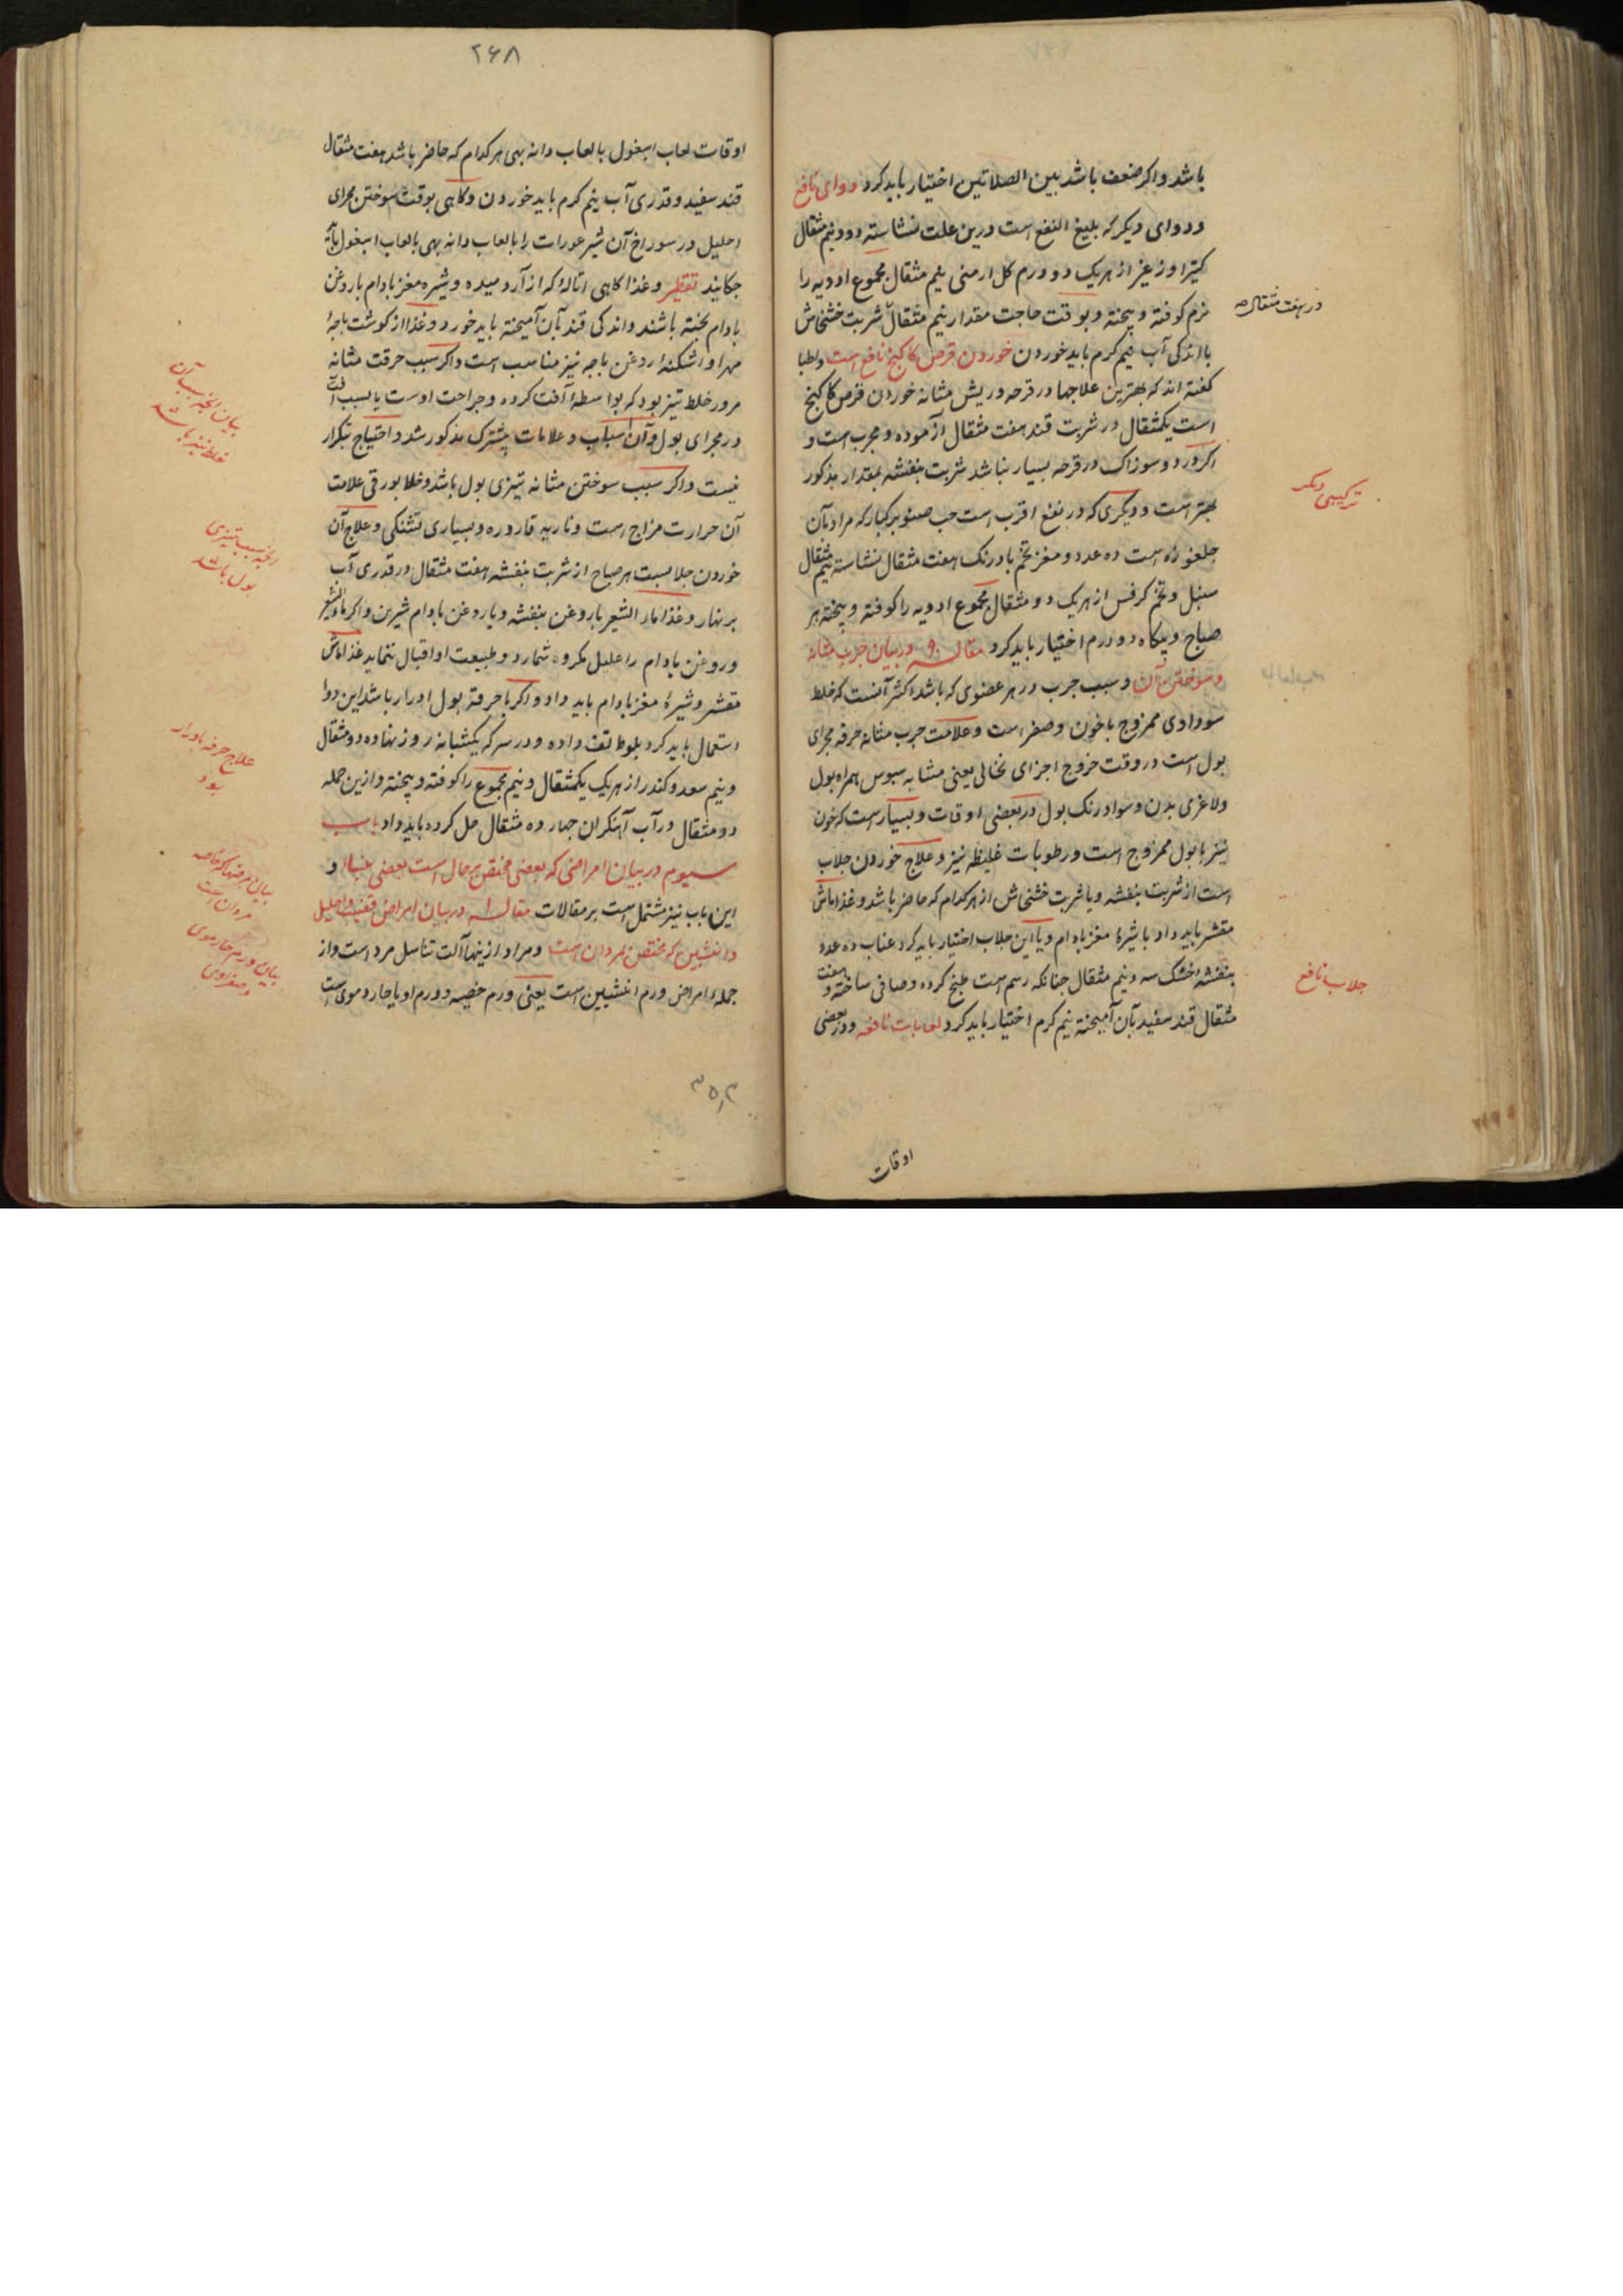 باشد واکر ضعف باشد بین الصلاتین اختیار باید کرد دوای نافع
ودوای دیکر که بلیغ النفع است درین علت نشاسته دو ونیم مثقال
کتیرا وزعیر از هریک دو درم کل ارمنی نیم مثقال مجموع ادویه را
نرم کوفته و بیخته وبوقت حاجت مقدار نیم مثقال شربت خشخاش
در هفت مثقال
بااندکی آب نیم کرم باید خوردن خوردن قرص کاکنج نافع است واطبا
کفته اند که بهترین علاجها در قرحه وریش مثانه خوردن قرص کاکنج
است یکمثقال در شربت قند هفت مثقال آزموده ومجرب است و
اکر درد وسوزاک در قرحه بسیار نباشد شربت بنفشه بمقدار مذکور
ترکیبی دیکر
بهتر است ودیکری که در نفع اقرب است حب صنوبر کبار که مراد بآن
جلغوزه است ده عدد ومغز تخم بادرنک هفت مثقال نشاسته نیم مثقال
سنبل وتخم کرفس از هریک دو مثقال مجموع ادویه را کوفته وبیخته هر
صباح وبیکاه دو درم اختیار باید کرد مقاله ۹ در بیان جرب مثانه
وسوختن آن وسبب جرب در هر عضوی که باشد اکثر آنست که خلط
سودادی ممزوج باخون وصفر است وعلامت جرب مثانه حرقه مجرای
بول است در وقت خروج اجزای نخالی یعنی مشابه سبوس همراه بول
ولاغری بدن وسواد رنک بول در بعضی اوقات وبسیار است که خون
نیز با بول ممزوج است ورطوبات غلیظه نیز وعلاج خوردن جلاب
است از شربت بنفشه ویا شربت خشخاش از هر کدام که حاضر باشد وغذا ماش
مقشر باید داد با شیرهٔ مغز بادام ویا این جلاب اختیار باید کرد عناب ده عدد
بنفشه خشک سه ونیم مثقال جنانکه رسم است طبخ کرده وصافی ساخته وهفت
جلاب نافع
مثقال قند سفید بآن آمیخته نیم کرم اختیار باید کرد لعابات نافعه ودر بعضی
اوقات
۲۶۸
اوقات لعاب اسبغول یا لعاب دانه بهی هر کدام که حاضر باشد هفت مثقال
قند سفید وقدری آب نیم کرم باید خوردن وکاهی بوقت سوختن مجرای
احلیل در سوراخ آن شیر عورات را بالعاب دانه بهی یا لعاب اسبغول باید
جکانید تقطیر وغذا کاهی که از آرد میده وشیره مغز بادام باروغن
بادام بخته باشند واندکی قند بآن آمیخته باید خورد وغذا از کوشت باجهٔ
مهرا واشکنهٔ روغن باجه نیز مناسب است واکر سبب حرقت مثانه
مرور خلط تیز بود که بواسطهٔ آفت کرده وجراحت اوست یا بسبب آفت
بیان انجه سبب آن
خلط تیز باشد
در مجرای بول وآن اسباب وعلامات بیشترک مذکور شد واحتیاج تکرار
نیست واکر سبب سوختن مثانه تیزی بول باشد وخلط بورقی علامت
آن حرارت مزاج است وناریه قاروره وبسیاری تشنکی وعلاج آن
انجه سبب تیزی
بول باشد
خوردن جلابست هر صباح از شربت بنفشه هفت مثقال در قدری آب
بر نهار وغذا ماء الشعیر باروغن بنفشه ویا روغن بادام شیرین واکر ماء الشعیر
وروغن بادام را علیل مکروه شمارد وطبیعت او اقبال ننماید غذا ماش
مقشر وشیرهٔ مغز بادام باید داد واکر با حرقة بول ادرار باشد این دوا
علاج حرقه بادرار
بود
استعمال باید کرد بلوط تفت داده ودر سرکه یکشبانه روز نهاده دو مثقال
ونیم سعد وکندر از هریک یکمثقال ونیم مجموع را کوفته وبیخته وازین جمله
دو مثقال در آب آهنکران جهارده مثقال حل کرده باید داد باب
سیوم در بیان امراضی که بعضی مختص برجال است بعضی بنسا و
بیان مرضها که خاصه
مردان است
این باب نیز مشتمل است بر مقالات مقاله ۱ در بیان امراض قضیب واحلیل
وانثیین که مختص بمردان است ومراد ازینها آلت تناسل مرد است واز
بیان ورم حار دموی
وصفراوی
جملهٔ امراض ورم انثیین است یعنی ورم خصیه وورم او یا حار دموی است